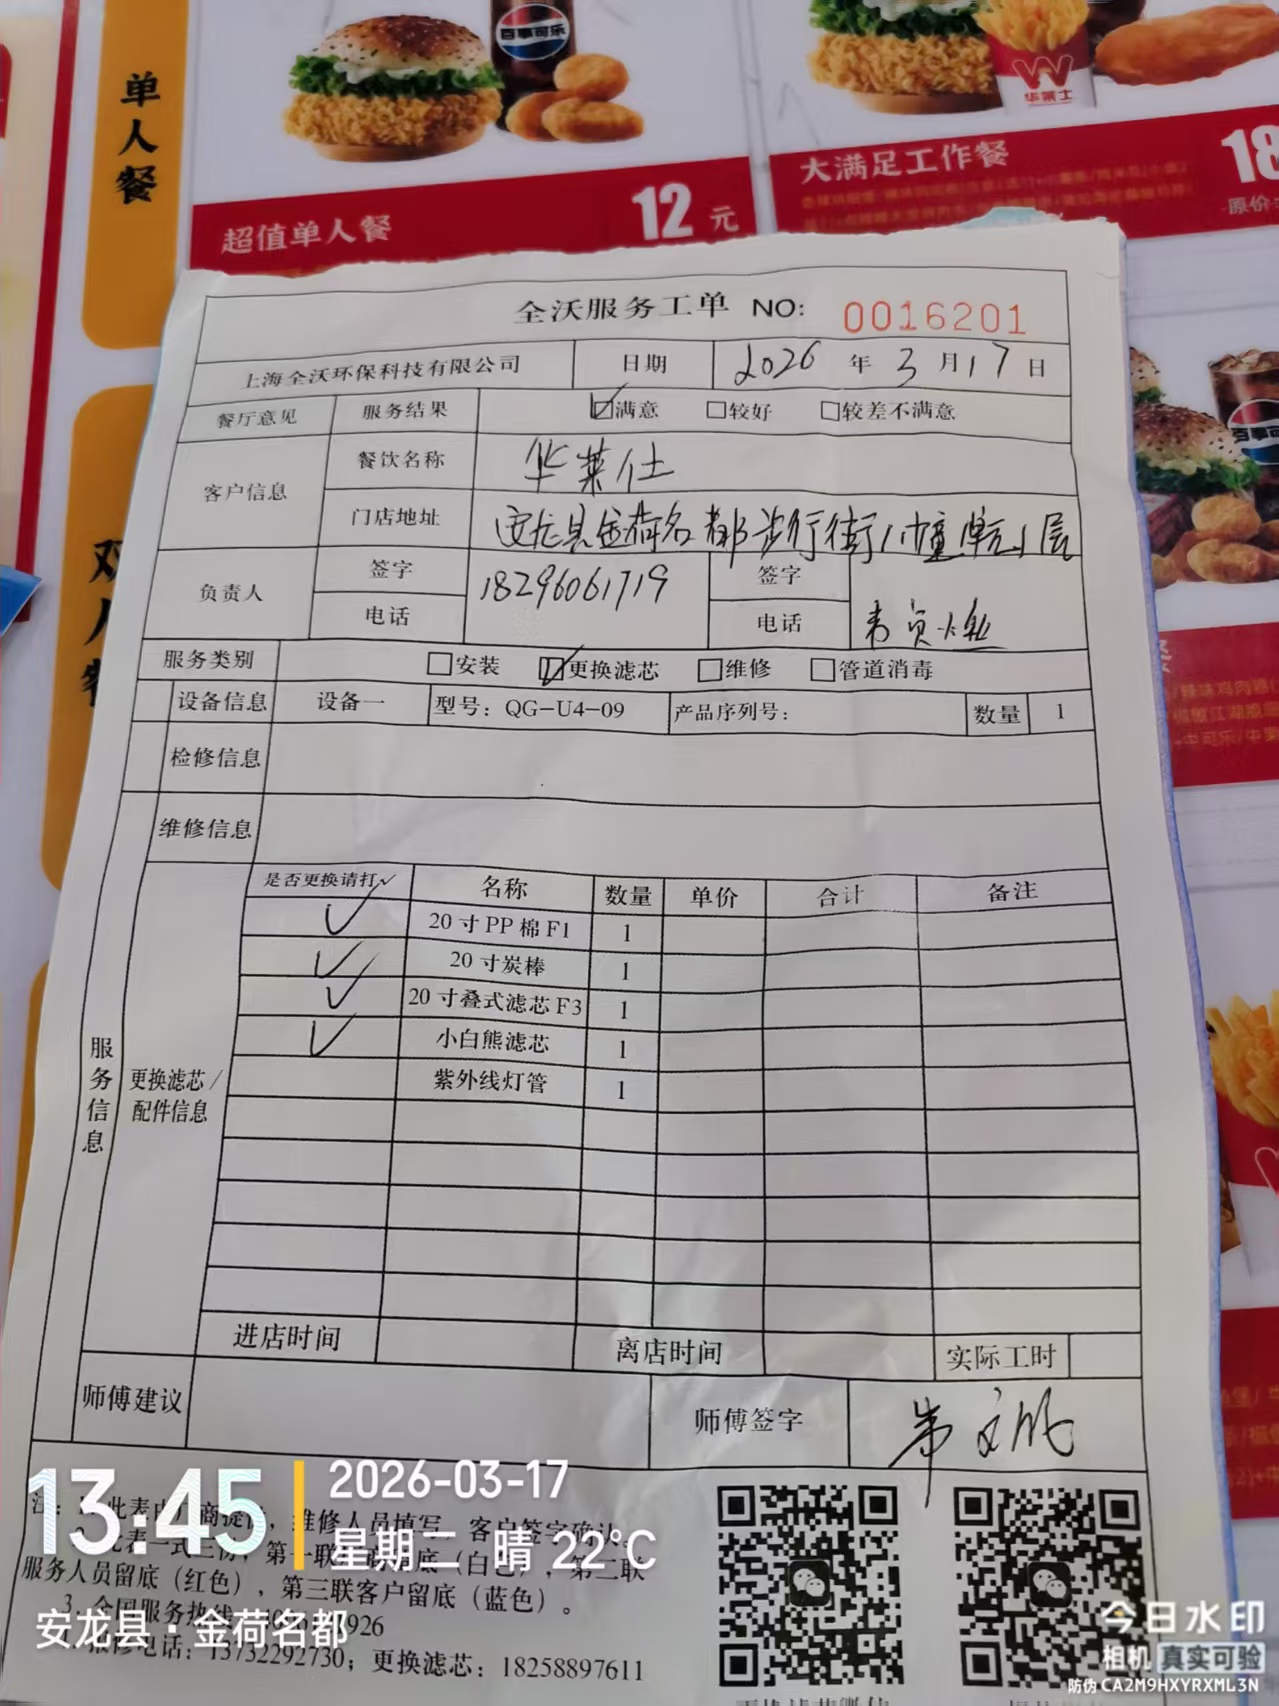 单人餐
百事可乐
超值单人餐
12元
华莱士
大满足工作餐
18
原价
百事可乐
全沃服务工单 NO: 0016201
上海全沃环保科技有限公司 日期 2026 年 3 月 17 日
餐厅意见 服务结果 ☑满意 □较好 □较差不满意
客户信息 餐饮名称 华莱仕
门店地址 安龙县金荷名都步行街1幢1单元1层
负责人 签字 18296061719 签字
电话 电话 韦贞
服务类别 □安装 ☑更换滤芯 □维修 □管道消毒
设备信息 设备一 型号：QG-U4-09 产品序列号： 数量 1
检修信息
维修信息
服务信息
更换滤芯/配件信息
是否更换请打✓ 名称 数量 单价 合计 备注
✓ 20寸PP棉F1 1
✓ 20寸炭棒 1
✓ 20寸叠式滤芯F3 1
✓ 小白熊滤芯 1
紫外线灯管 1
进店时间 离店时间 实际工时
师傅建议 师傅签字
注：1.此表由厂商提供，维修人员填写，客户签字确认。
表一式三份，第一联 留底（白色），第二联
服务人员留底（红色），第三联客户留底（蓝色）。
3.全国服务热线 926
报修电话：13732292730；更换滤芯：18258897611
13:45
2026-03-17
星期二 晴 22℃
安龙县·金荷名都
今日水印
相机 真实可验
防伪 CA2M9HXYRXML3N